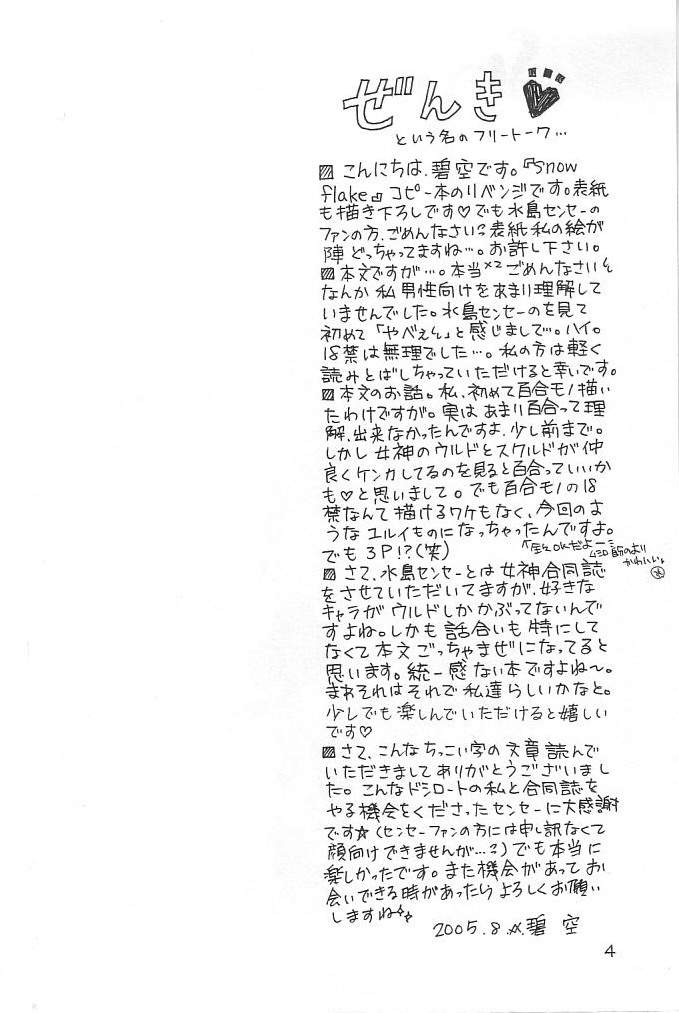 ぜんき♥
という名のフリートーク…
▨こんにちは、碧空です。『Snow
flake』コピー本のリベンジです。表紙
も描き下ろしです♡でも水島センセーの
ファンの方、ごめんなさい:表紙私の絵が
陣どっちゃってますね…。お許し下さい。
▨本文ですが…。本当×2ごめんなさい
なんか私男性向けをあまり理解して
いませんでした。水島センセーのを見て
初めて「やべえ」と感じまして…。ハイ。
18禁は無理でした…。私の方は軽く
読みとばしちゃっていただけると幸いです。
▨本文のお話。私、初めて百合モノ描い
たわけですが。実はあまり百合って理
解、出来なかったんですよ、少し前まで。
しかし女神のウルドとスクルドが仲
良くケンカしてるのを見ると百合っていいか
も♡と思いまして。でも百合モノの18
禁なんて描けるワケもなく、今回のよ
うなユルイものになっちゃったんですよ。
でも3P!?(笑)
OKだよー
のより
かわいい。
▨さて、水島センセーとは女神合同誌
をさせていただいてますが、好きな
キャラがウルドしかかぶってないんで
すよね。しかも話合いも特にして
なくて本文ごっちゃまぜになってると
思います。統一感ない本ですよね〜。
まぁそれはそれで私達らしいかなと。
少しでも楽しんでいただけると嬉しい
です♡
▨さて、こんなちっこい字の文章読んで
いただきましてありがとうございまし
た。こんなドシロートの私と合同誌を
やる機会をくださったセンセーに大感謝
です☆(センセーファンの方には申し訳なくて
顔向けできませんが…:)でも本当に
楽しかったです。また機会があってお
会いできる時があったらよろしくお願い
しますね
2005.8.☆.碧 空
4